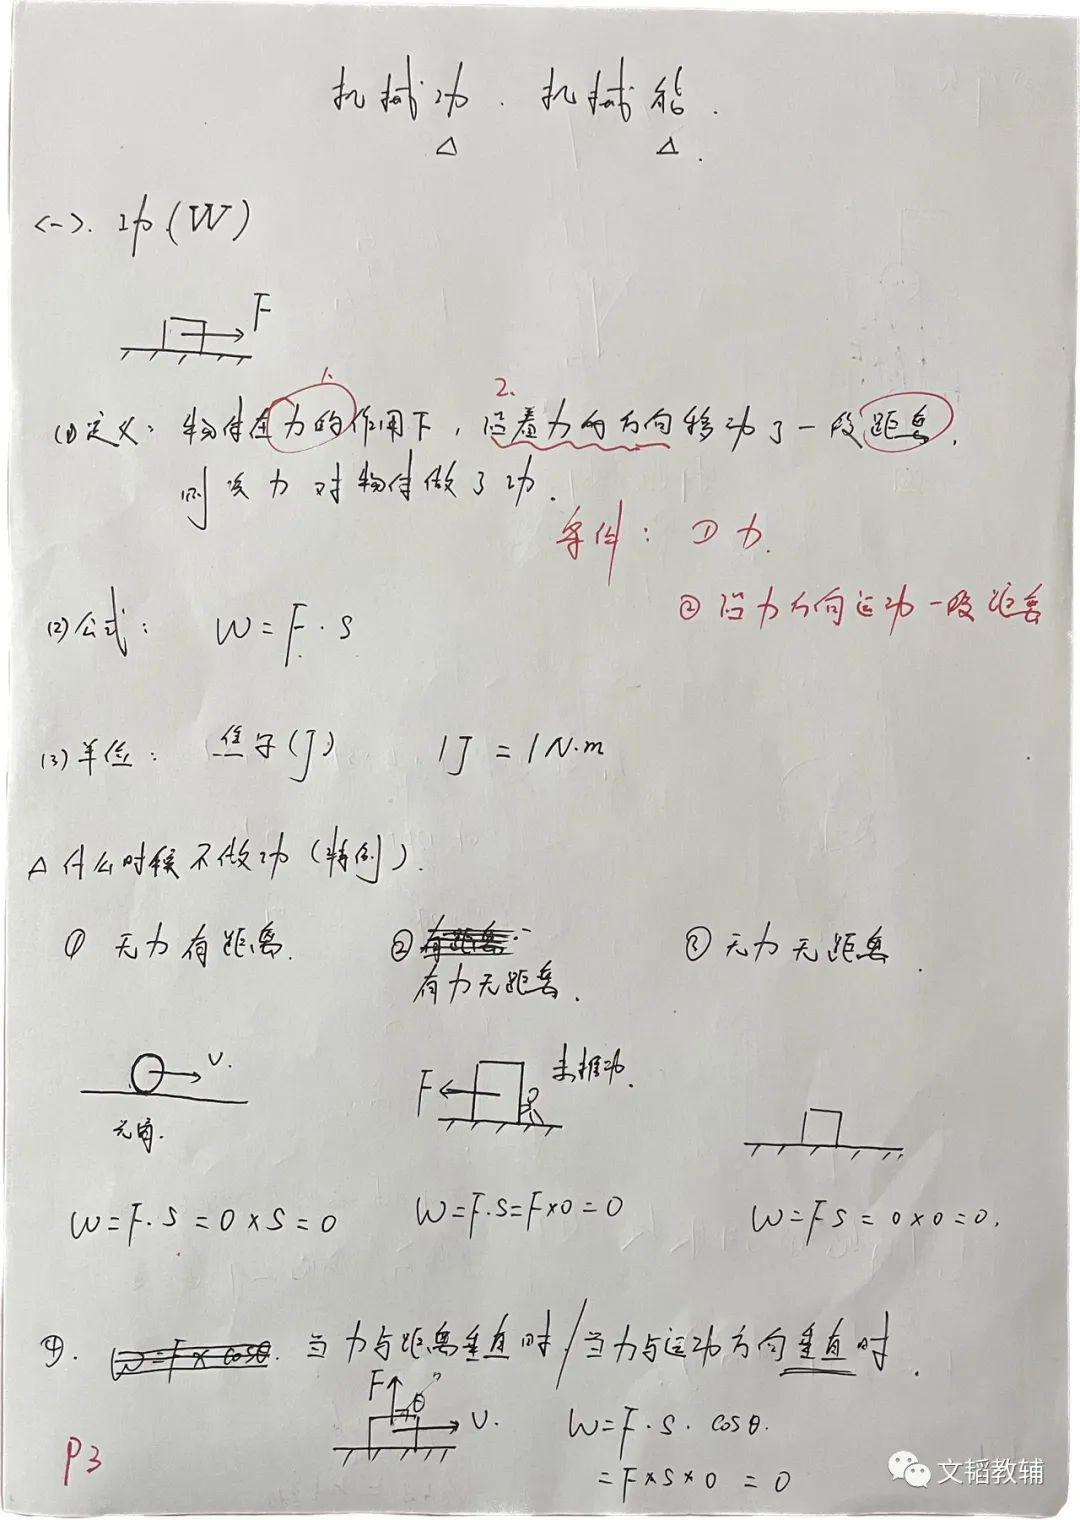 机械功. 机械能.
△ △.
<一>. 功(W)
F
1. 2.
(1)定义: 物体在力的作用下, 沿着力的方向移动了一段距离.
则该力对物体做了功.
条件: ①力.
②沿力方向运动一段距离
(2)公式: W=F·S
(3)单位: 焦耳(J) 1J=1N·m
△什么时候不做功(特例).
①无力有距离. ②有距离 ③无力无距离.
有力无距离.
V. F 未推动.
光滑.
W=F·S=0×S=0 W=F·S=F×0=0 W=FS=0×0=0.
④. W=F×cosθ. 当力与距离垂直时/当力与运动方向垂直时.
F θ V. W=F·S·cosθ.
=F×S×0=0
P3
文韬教辅